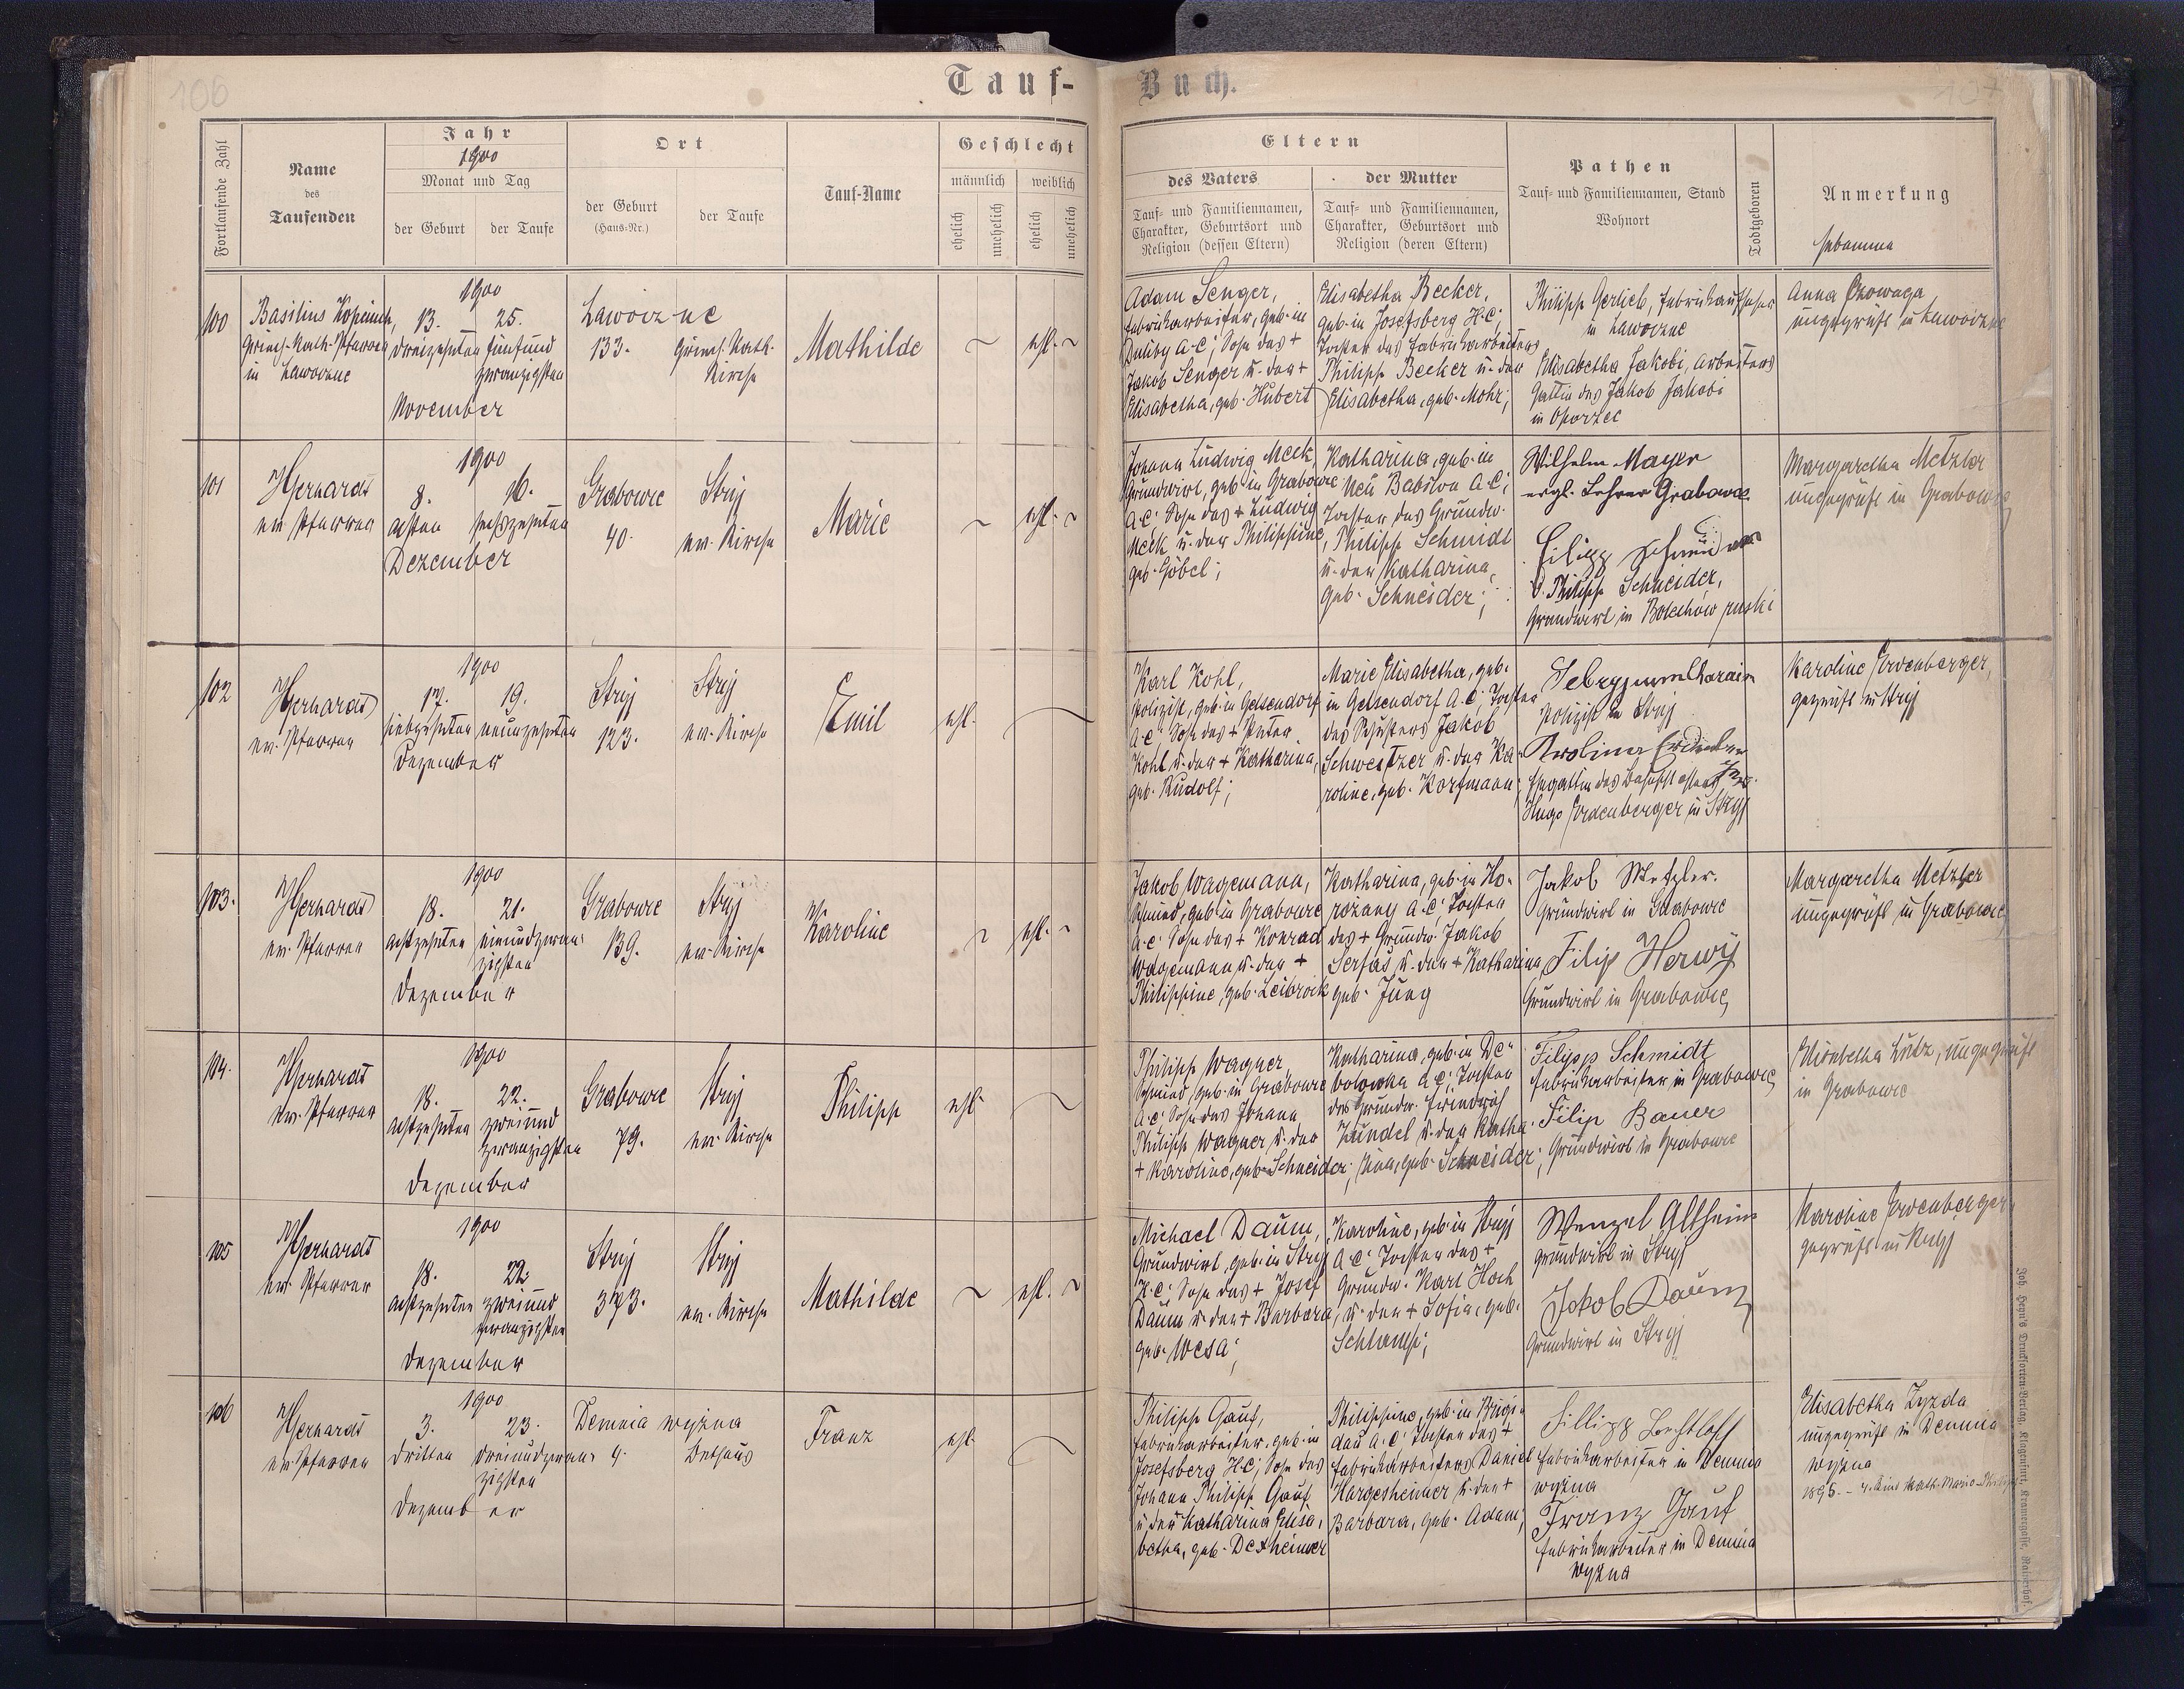 106
Tauf-
Buch.
107
Fortlaufende Zahl
Name
des
Taufenden
Jahr
1900
Monat und Tag
der Geburt
der Taufe
Ort
der Geburt
(Haus-Nr.)
der Taufe
Tauf-Name
Geschlecht
männlich
weiblich
ehelich
unehelich
ehelich
unehelich
Eltern
des Vaters
Tauf- und Familiennamen,
Charakter, Geburtsort und
Religion (dessen Eltern)
der Mutter
Tauf- und Familiennamen,
Charakter, Geburtsort und
Religion (deren Eltern)
Pathen
Tauf- und Familiennamen, Stand
Wohnort
Todtgeboren
Anmerkung
Hebamme
100
Basilius
griech.-kath. Pfarrer
in Lawoczne
1900
13. 25.
dreizehnten fünfund
zwanzigsten
November
Lawoczne
133. griech. kath.
Kirche
Mathilde
ehl.
Adam Senger,
Fabrikarbeiter, geb. in
Duliby A.C; Sohn des +
Jakob Senger u. der +
Elisabetha, geb. Hubert
Elisabetha Becker,
geb. in Josefsberg H.C;
Tochter des Fabrikarbeiters
Philipp Becker u. der
Elisabetha, geb. Mohr;
Philipp Gerlieb, Fabrikaufseher
in Lawoczne
Elisabetha Jakobi, Arbeiters
Gattin des Jakob Jakobi
in Oporzec
Anna
ungeprüft in Lawoczne
101
HGerhardt
ev. Pfarrer
1900
8. 16.
achten sechszehnten
Dezember
Grabowce
40.
Stryj
ev. Kirche
Marie
ehl.
Johann Ludwig Meck,
Grundwirt, geb. in Grabowce
A.C; Sohn des + Ludwig
Meck u. der Philippine,
geb. Göbel;
Katharina, geb. in
Neu Babilon A.C;
Tochter des Grundw.
Philipp Schmidt
u. der Katharina,
geb. Schneider;
Wilhelm Mayer
evgl. Lehrer Grabowce
Filipp Schneider
v. Philipp Schneider,
Grundwirt in Bolechów ruski
Margaretha Metzler
ungeprüft in Grabowce
102
HGerhardt
ev. Pfarrer
1900
17. 19.
siebzehnten neunzehnten
Dezember
Stryj
123.
Stryj
ev. Kirche
Emil
ehl.
Karl Kohl,
Polizist, geb. in Gelsendorf
A.C; Sohn des + Peter
Kohl u. der + Katharina,
geb. Rudolf;
Marie Elisabetha, geb.
in Gelsendorf A.C; Tochter
des Schusters Jakob
Schweitzer u. der Ka-
roline, geb. Korfmann;
Polizist in Stryj
Ehegattin des
Hugo Erdenberger in Stryj
Karoline Erdenberger,
geprüft in Stryj
103.
HGerhardt
ev. Pfarrer
1900
18. 21.
achtzehnten einundzwan-
zigsten
Dezember
Grabowce
139.
Stryj
ev. Kirche
Karoline
ehl.
Jakob Wagemann,
Schmied, geb. in Grabowce
A.C; Sohn des + Konrad
Wagemann u. der +
Philippine, geb. Leibrock
Katharina, geb. in Ho-
rożany A.C; Tochter
des + Grundw. Jakob
Serfas u. der + Katharina,
geb. Jung
Jakob Metzler.
Grundwirt in Grabowce
Filip Herwÿ
Grundwirt in Grabowce
Margaretha Metzler
ungeprüft in Grabowce
104.
HGerhardt
ev. Pfarrer
1900
18. 22.
achtzehnten zweiund
zwanzigsten
Dezember
Grabowce
79.
Stryj
ev. Kirche
Philipp
ehl.
Philipp Wagner,
Schmied, geb. in Grabowce
A.C; Sohn des Johann
Philipp Wagner u. der
+ Karoline, geb. Schneider;
Katharina, geb. in De-
bolowka A.C; Tochter
des Grundw. Friedrich
Kundel u. der Katha-
rina, geb. Schneider;
Filipp Schmidt
Fabrikarbeiter in Grabowce
Filip Bauer
Grundwirt in Grabowce
Elisabetha Lutz, ungeprüft
in Grabowce
105
HGerhardt
ev. Pfarrer
1900
18. 22.
achtzehnten zweiund
zwanzigsten
Dezember
Stryj
373.
Stryj
ev. Kirche
Mathilde
ehl.
Michael Daum,
Grundwirt, geb. in Stryj
H.C; Sohn des + Josef
Daum u. der + Barbara,
geb. Wesa;
Karoline, geb. in Stryj
A.C; Tochter des +
Grundw. Karl Hoch
u. der + Sofia, geb.
Schlamp;
Wenzel Altheim
Grundwirt in Stryj
Jakob Daum
Grundwirt in Stryj
Karoline Erdenberger,
geprüft in Stryj
106
HGerhardt
ev. Pfarrer
1900
3. 23.
dritten dreiundzwan-
zigsten
Dezember
Demnia wyżna
4. Bethaus
Franz
ehl.
Philipp Gauf,
Fabrikarbeiter, geb. in
Josefsberg H.C; Sohn des
Johann Philipp Gauf
u. der Katharina Elisa-
betha, geb. Dexheimer
Philippine, geb. in Brigi-
dau A.C; Tochter des +
Fabrikarbeiters Daniel
Hargesheimer u. der +
Barbara, geb. Adam;
Fillipp
Fabrikarbeiter in Demnia
wyżna
Franz Gauf
Fabrikarbeiter in Demnia
wyżna
Elisabetha Zyzda
ungeprüft in Demnia
wyżna
Joh. Heyn's Drucksorten-Verlag, Klagenfurt, Kramergasse, Kaiserhof.